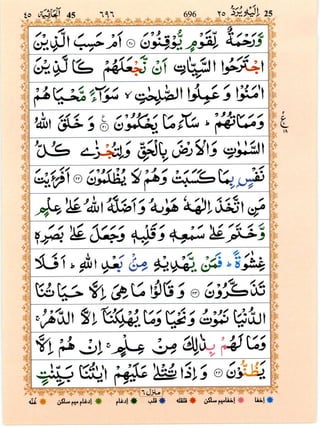 ٤٥ الجاثية 45 ٦٩٦ 696 اليه يرد ٢٥ 25
وَّرَحْمَةٌ لِّقَوْمٍ يُّوْقِنُوْنَ ﴿٢٠﴾ اَمْ حَسِبَ الَّذِيْنَ
اجْتَرَحُوا السَّيِّاٰتِ اَنْ نَّجْعَلَهُمْ كَالَّذِيْنَ
اٰمَنُوْا وَ عَمِلُوا الصّٰلِحٰتِ ۙ سَوَآءً مَّحْيَاهُمْ
وَمَمَاتُهُمْ ؕ سَآءَ مَا يَحْكُمُوْنَ ﴿٢١﴾ وَ خَلَقَ اللّٰهُ
السَّمٰوٰتِ وَ الْاَرْضَ بِالْحَقِّ وَ لِتُجْزٰى كُلُّ
نَفْسٍۭ بِمَا كَسَبَتْ وَهُمْ لَا يُظْلَمُوْنَ ﴿٢٢﴾ اَفَرَءَيْتَ
مَنِ اتَّخَذَ اِلٰهَهٗ هَوٰىهُ وَ اَضَلَّهُ اللّٰهُ عَلٰى عِلْمٍ
وَّ خَتَمَ عَلٰى سَمْعِهٖ وَ قَلْبِهٖ وَجَعَلَ عَلٰى بَصَرِهٖ
غِشٰوَةً ؕ فَمَنْ يَّهْدِيْهِ مِنْۢ بَعْدِ اللّٰهِ ؕ اَفَلَا
تَذَكَّرُوْنَ ﴿٢٣﴾ وَ قَالُوْا مَا هِىَ اِلَّا حَيَاتُنَا
الدُّنْيَا نَمُوْتُ وَ نَحْيَا وَمَا يُهْلِكُنَاۤ اِلَّا الدَّهْرُ ۚ
وَمَا لَهُمْ بِذٰلِكَ مِنْ عِلْمٍ ۚ اِنْ هُمْ اِلَّا
يَظُنُّوْنَ ﴿٢٤﴾ وَ اِذَا تُتْلٰى عَلَيْهِمْ اٰيٰتُنَا بَيِّنٰتٍ
منزل ٦
اخفا اخفا میم ساکن قلقلہ قلب ادغام ادغام میم ساکن غنّہ